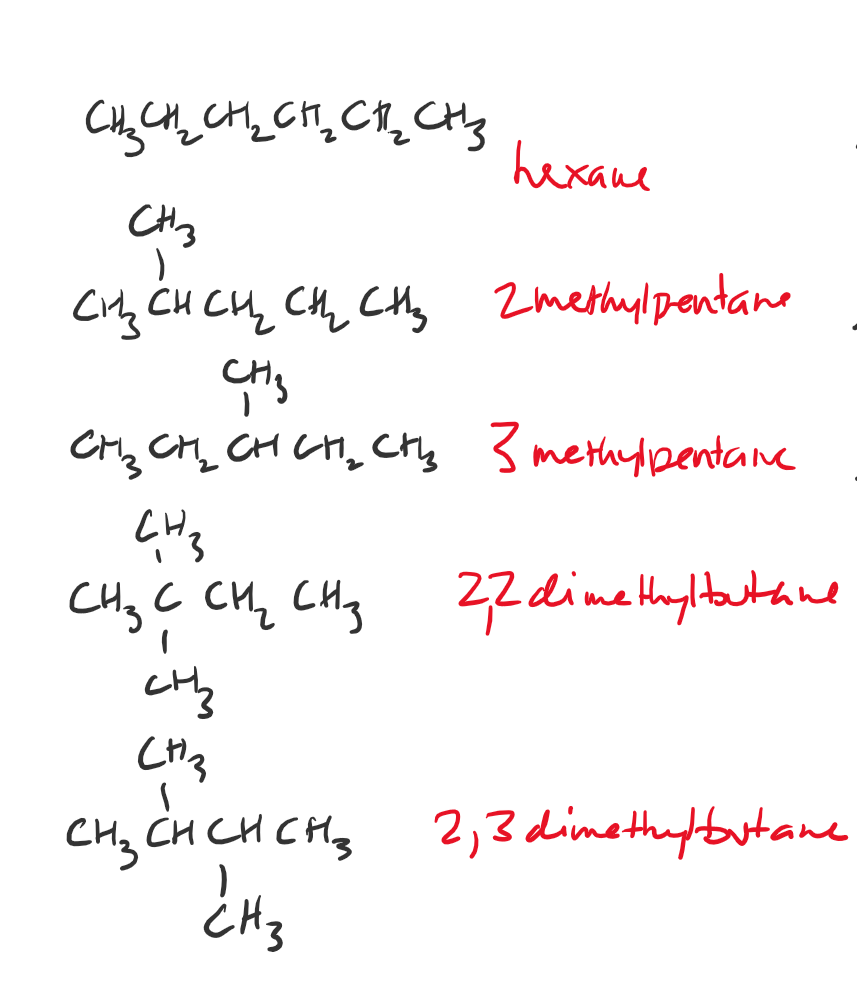 CH3CH2CH2CH2CH2CH3
hexane
CH3
CH3CHCH2CH2CH3 2methylpentane
CH3
CH3CH2CHCH2CH3 3 methylpentane
CH3
CH3CCH2CH3 2,2dimethylbutane
CH3
CH3
CH3CHCHCH3 2,3dimethylbutane
CH3